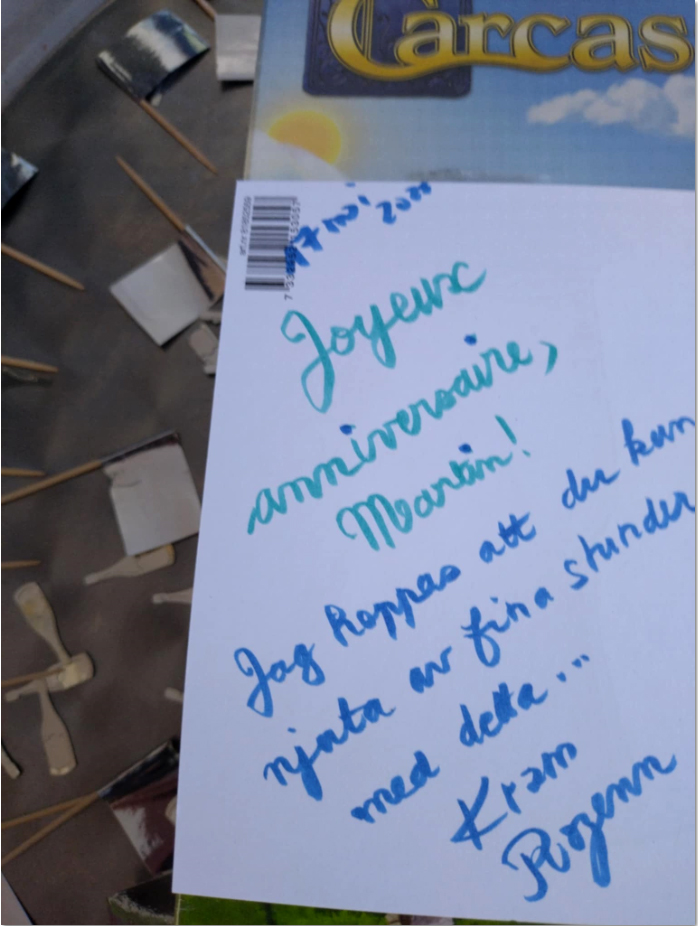 Carcas
Joyeux
anniversaire,
Martin!
Jag hoppas att du kan
njuta av fina stunder
med detta...
Kram
Rozenn